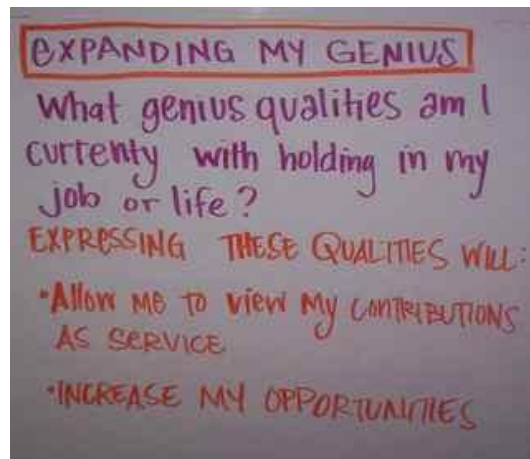 EXPANDING MY GENIUS
What genius qualities am I
currently with holding in my
job or life?
EXPRESSING THESE QUALITIES WILL:
•Allow me to view my contributions
AS SERVICE
•INCREASE MY OPPORTUNITIES